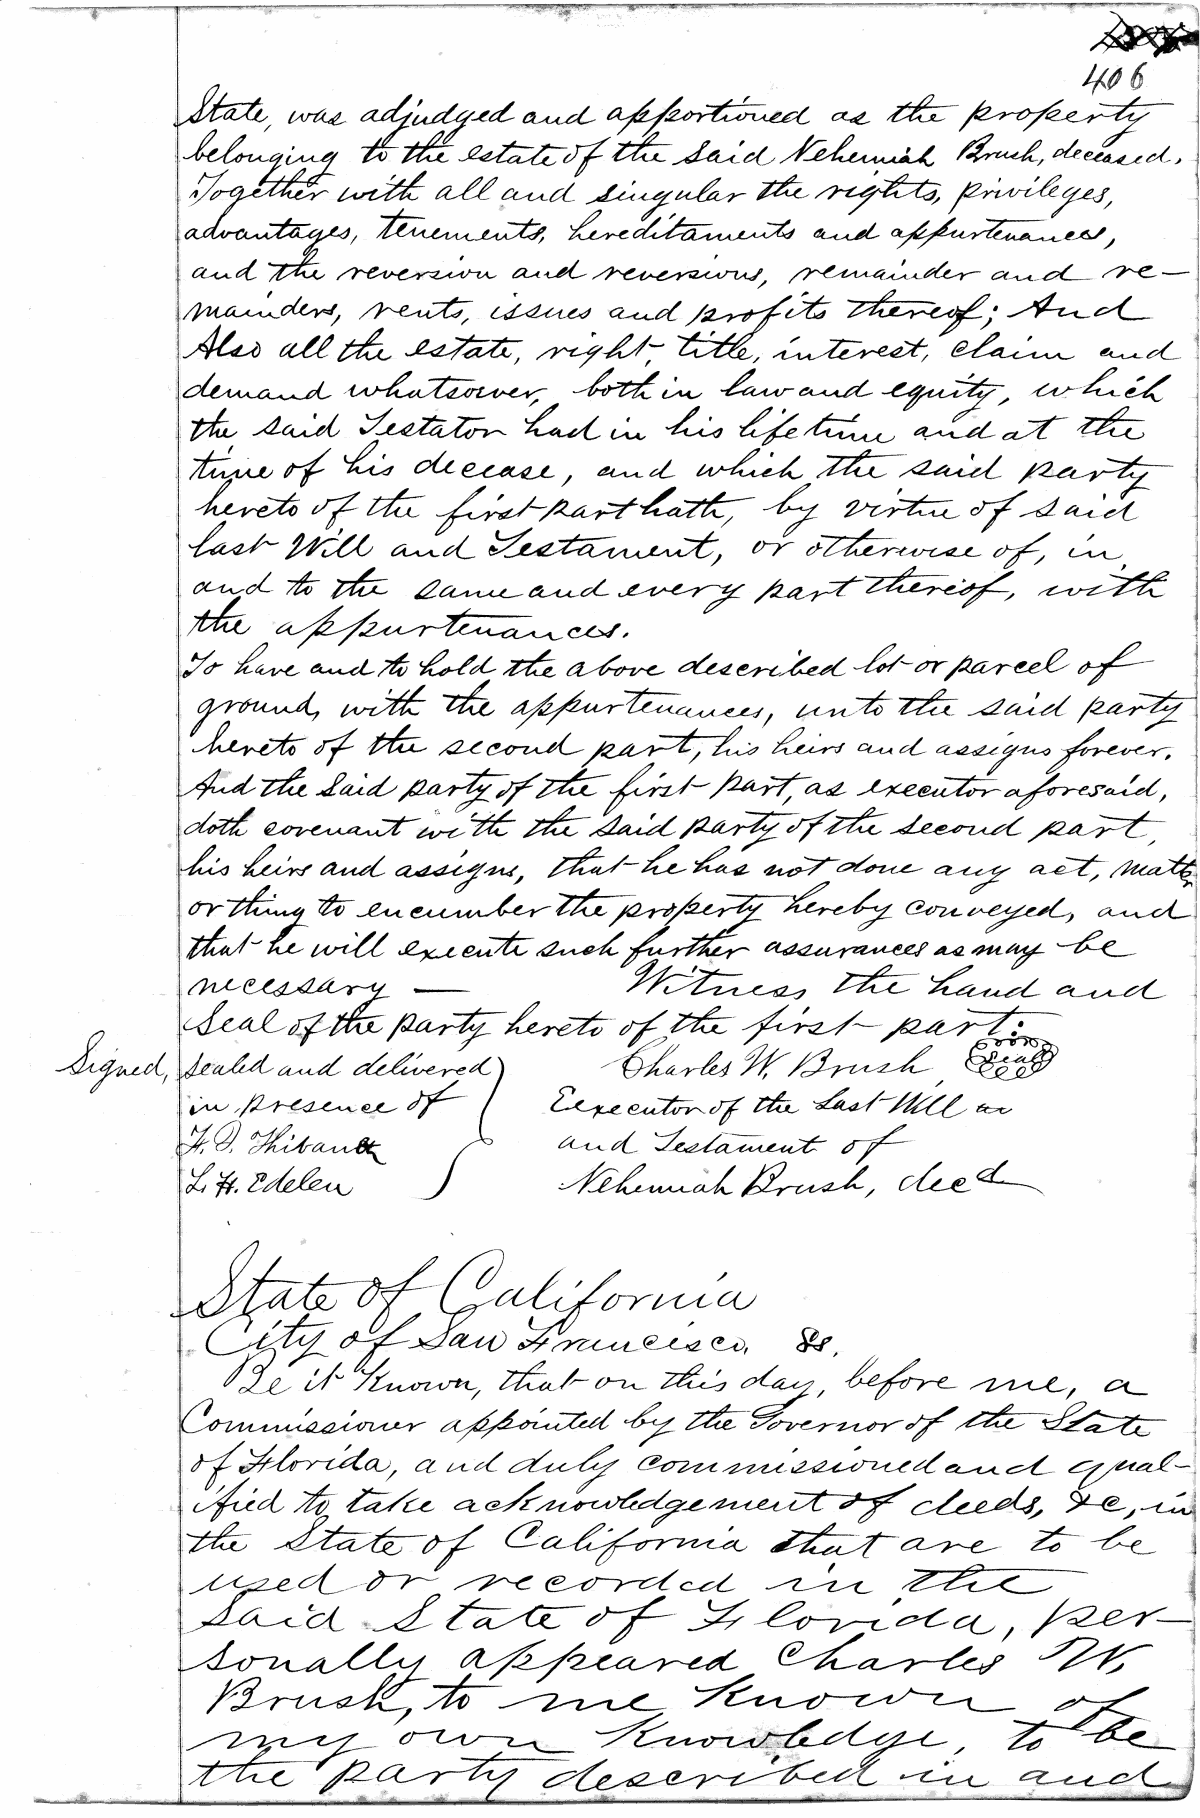 406
State, was adjudged and apportioned as the property
belonging to the estate of the said Nehemiah Brush, deceased.
Together with all and singular the rights, privileges,
advantages, tenements, hereditaments and appurtenances,
and the reversion and reversions, remainder and re-
mainders, rents, issues and profits thereof; And
Also all the estate, right, title, interest, claim and
demand whatsoever, both in law and equity, which
the said Testator had in his lifetime and at the
time of his decease, and which the said party
hereto of the first part hath, by virtue of said
last Will and Testament, or otherwise of, in,
and to the same and every part thereof, with
the appurtenances.
To have and to hold the above described lot or parcel of
ground, with the appurtenances, unto the said party
hereto of the second part, his heirs and assigns forever.
And the said party of the first part, as executor aforesaid,
doth covenant with the said party of the second part,
his heirs and assigns, that he has not done any act, matter
or thing to encumber the property hereby conveyed, and
that he will execute such further assurances as may be
necessary — Witness the hand and
Seal of the party hereto of the first part:
Signed, sealed and delivered Charles W. Brush Seal
in presence of Eexecutor of the Last Will an
F. D. Thibault and Testament of
L. H. Edelen Nehemiah Brush, decd
State of California
City of San Francisco. ss.
Be it Known, that on this day, before me, a
Commissioner appointed by the Governor of the State
of Florida, and duly commissioned and qual-
ified to take acknowledgement of deeds, &c, in
the State of California that are to be
used or recorded in the
said State of Florida, per-
sonally appeared Charles W.
Brush, to me known of
my own Knowledge, to be
the party described in and